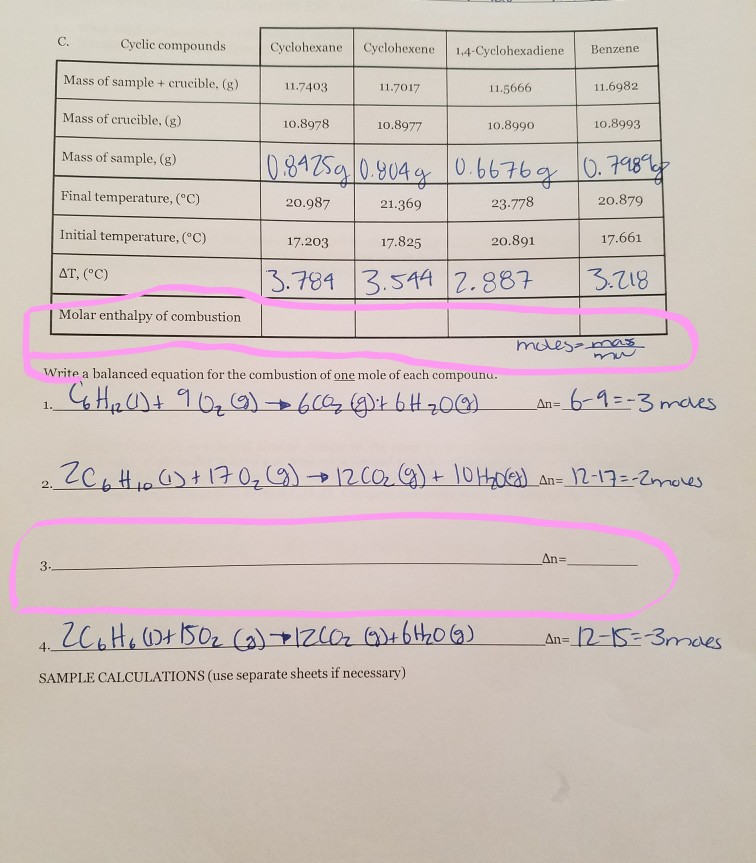 C. Cyclic compounds Cyclohexane Cyclohexene 1,4-Cyclohexadiene Benzene
Mass of sample + crucible, (g) 11.7403 11.7017 11.5666 11.6982
Mass of crucible, (g) 10.8978 10.8977 10.8990 10.8993
Mass of sample, (g) 0.8425g 0.804g 0.6676g 0.7989g
Final temperature, (°C) 20.987 21.369 23.778 20.879
Initial temperature, (°C) 17.203 17.825 20.891 17.661
ΔT, (°C) 3.784 3.544 2.887 3.218
Molar enthalpy of combustion
moles=mas/mw
Write a balanced equation for the combustion of one mole of each compound.
1. C6H12(l)+ 9O2(g)→6CO2(g)+6H2O(g) Δn= 6-9=-3 moles
2. 2C6H10(l)+17O2(g)→12CO2(g)+10H2O(g) Δn= 12-17=-2moles
3. Δn=
4. 2C6H6(l)+15O2(g)→12CO2(g)+6H2O(g) Δn= 12-15=-3moles
SAMPLE CALCULATIONS (use separate sheets if necessary)